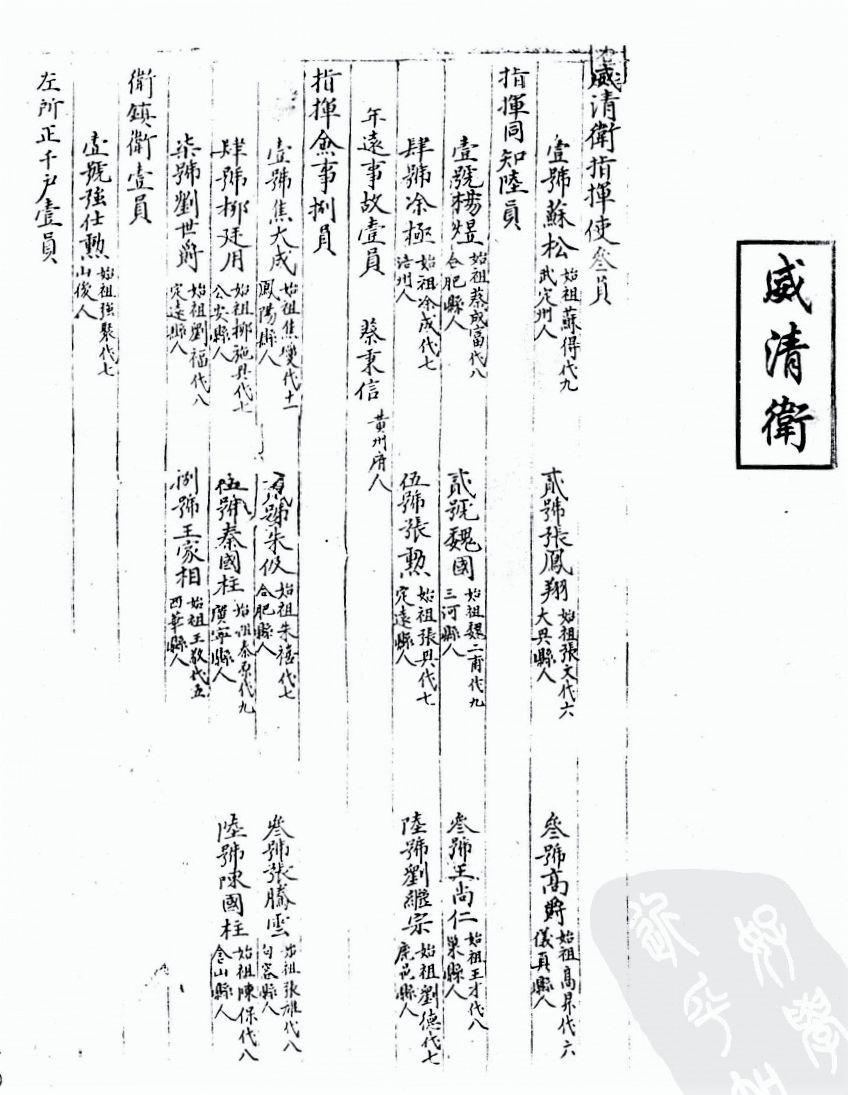 威清衛
威清衛指揮使叄員
壹號蘇松 始祖蘇得代九 武定州人 貳號張鳳翔 始祖張文代六 大興縣人 叄號高爵 始祖高昇代六 儀真縣人
指揮同知陸員
壹號楊煜 始祖蔡成富代八 合肥縣人 貳號魏國 始祖魏二甫代九 三河縣人 叄號王尚仁 始祖王才代八 巢縣人
肆號冷極 始祖冷成代七 涪州人 伍號張勲 始祖張興代七 定遠縣人 陸號劉繼宗 始祖劉德代七 鹿邑縣人
年遠事故壹員 蔡秉信 黃州府人
指揮僉事捌員
壹號焦大成 始祖焦 代十一 鳳陽縣人 貳號朱 始祖朱禧代七 合肥縣人 叄號張騰雲 始祖張雄代八 句容縣人
肆號柳廷用 始祖柳施 代七 公安縣人 伍號秦國柱 始祖秦原代九 廣寧縣人 陸號陳國柱 始祖陳保代八 含山縣人
柒號劉世爵 始祖劉福代八 定遠縣人 捌號王家相 始祖王敬代五 西華縣人
衛鎮衛壹員
壹號強仕勲 始祖強 代七 山 人
左所正千戶壹員
好學